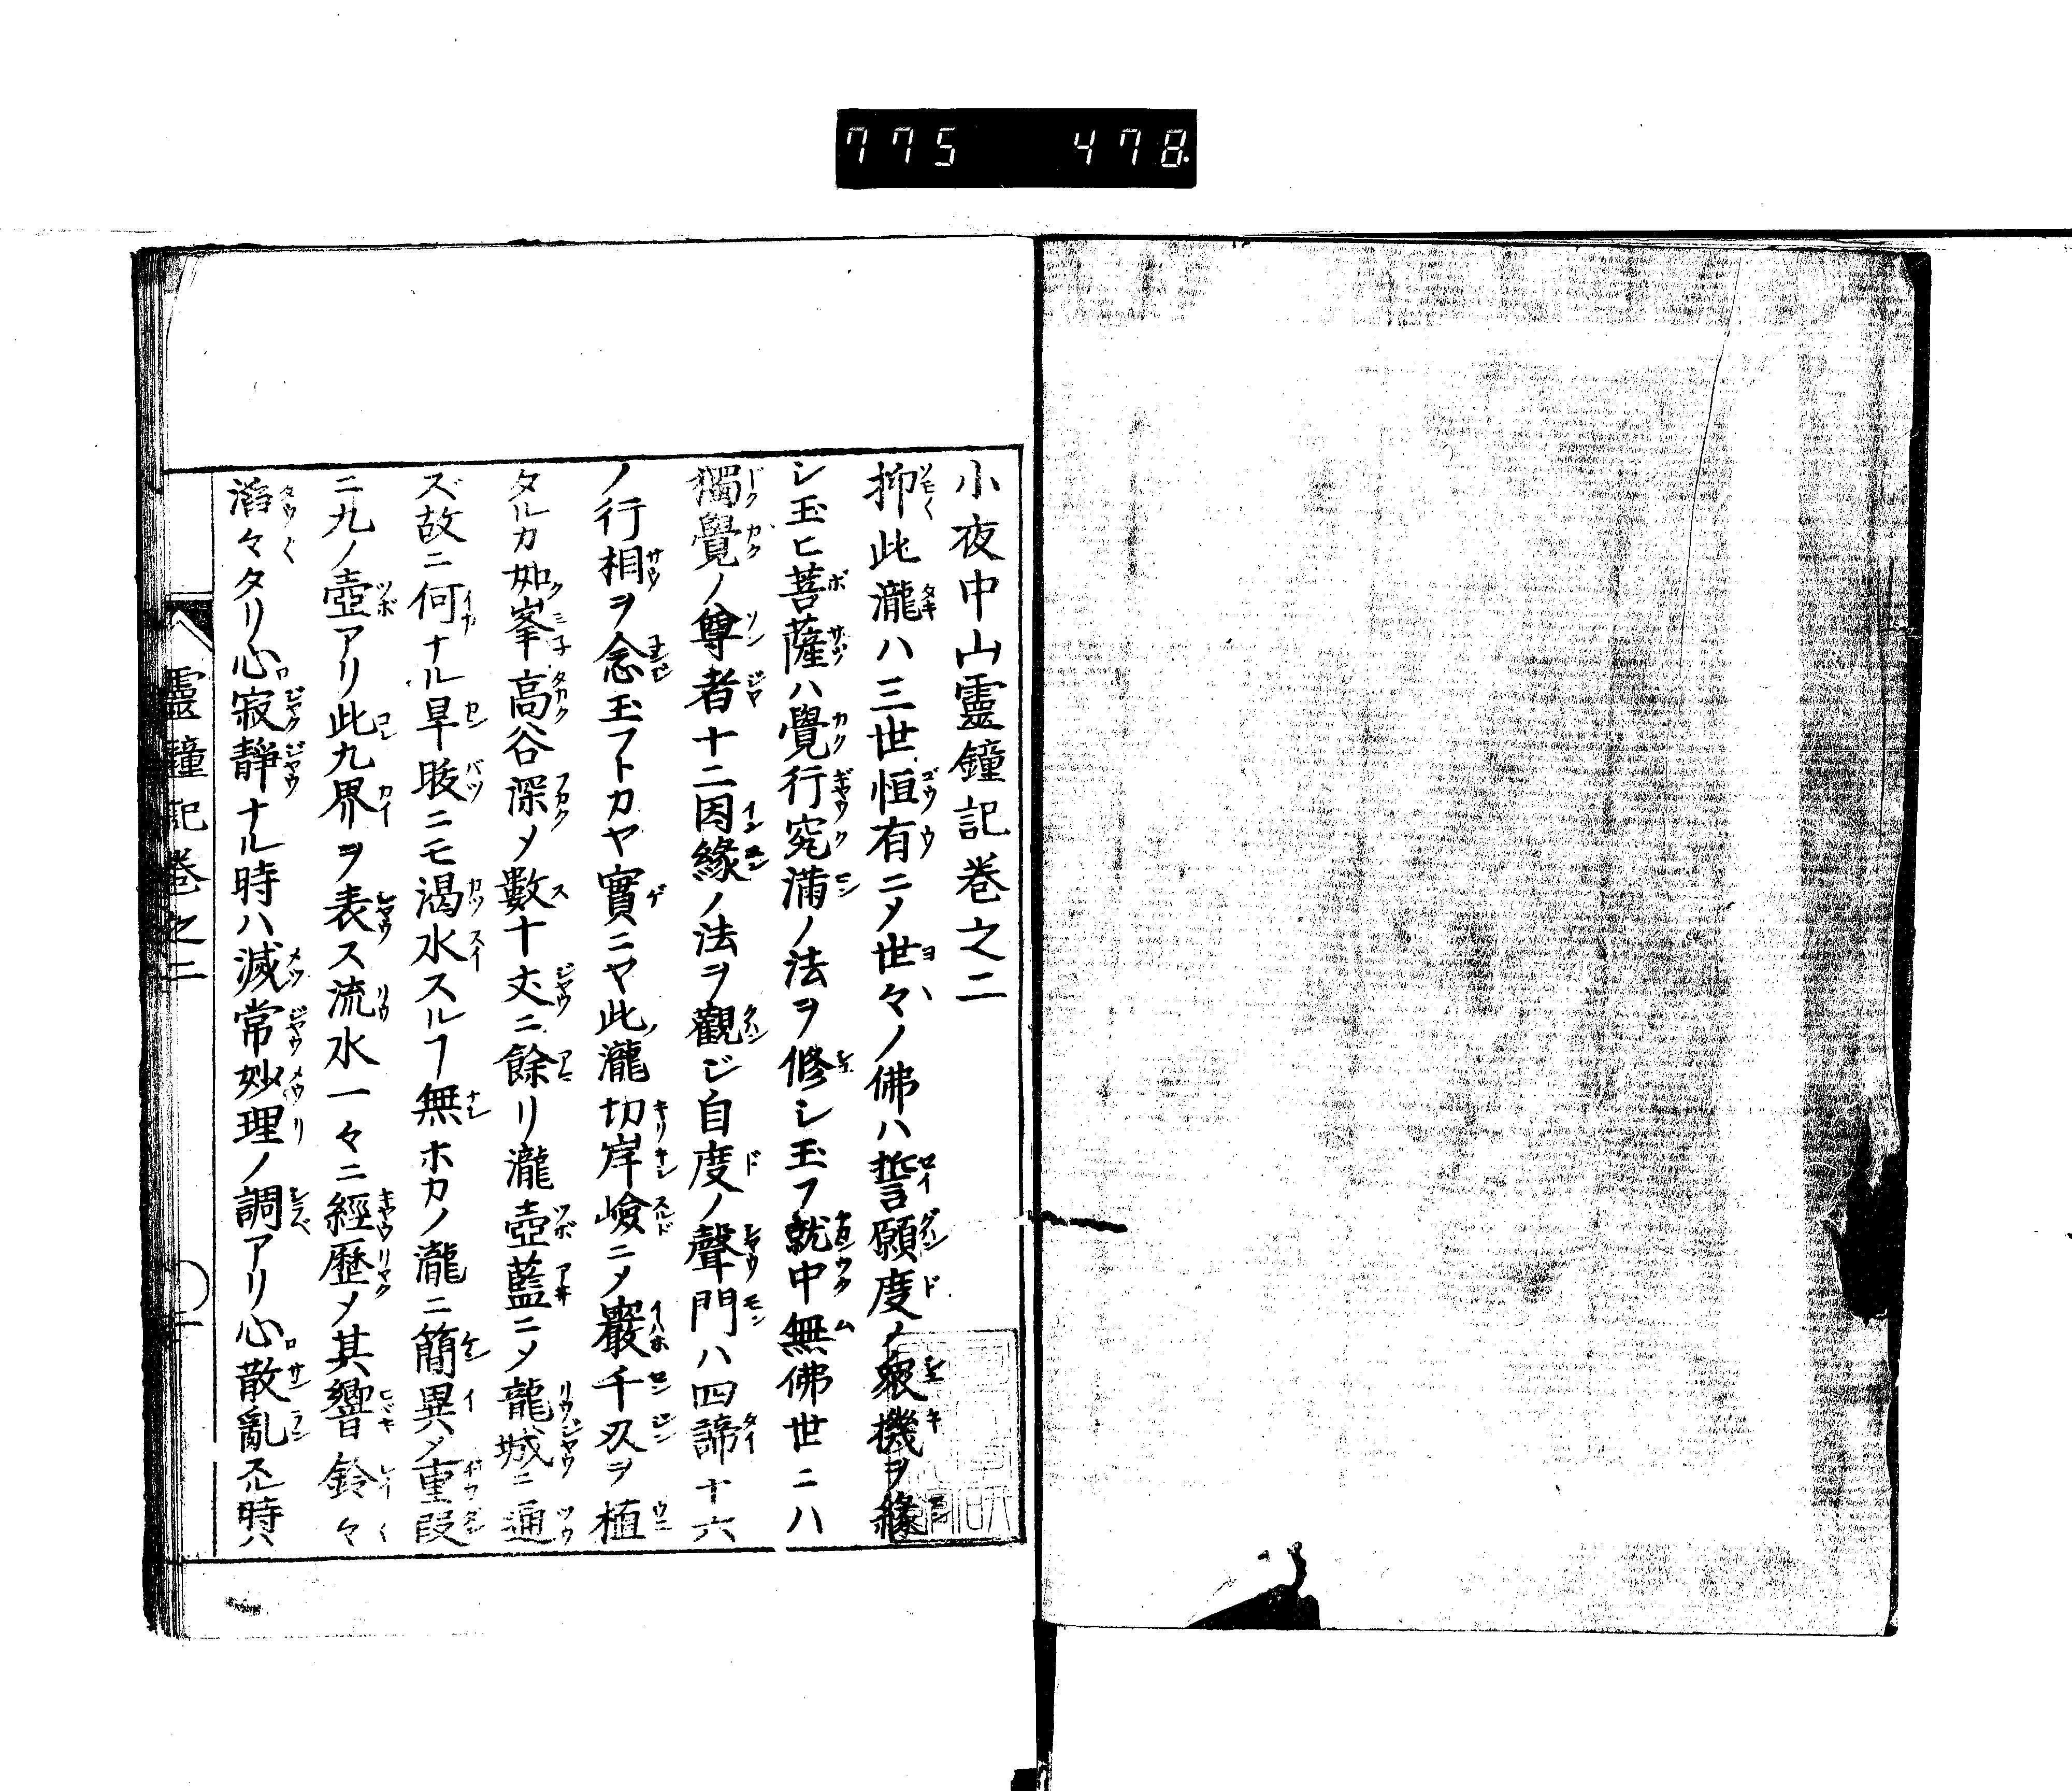 775 478
小夜中山靈鐘記巻之二
抑此瀧ハ三世恒有ニ〆世々ノ佛ハ誓願度ノ衆機ヲ緣
シ玉ヒ菩薩ハ覺行究滿ノ法ヲ修シ玉フ就中無佛世ニハ
獨覺ノ尊者十二因緣ノ法ヲ觀ジ自度ノ聲門ハ四諦十六
ノ行相ヲ念玉フトカヤ實ニヤ此瀧切岸嶮ニ〆巖千刄ヲ植
タルカ如峯高谷深〆數十丈ニ餘リ瀧壺藍ニ〆龍城ニ通
ズ故ニ何ナル旱睃ニモ渇水スルヿ無ホカノ瀧ニ簡異〆重段
ニ九ノ壺アリ此九界ヲ表ス流水一々ニ經歷〆其響鈴々
滔々タリ心寂靜ナル時ハ滅常妙理ノ調アリ心散亂スル時ハ
靈鐘記巻之二 〇一